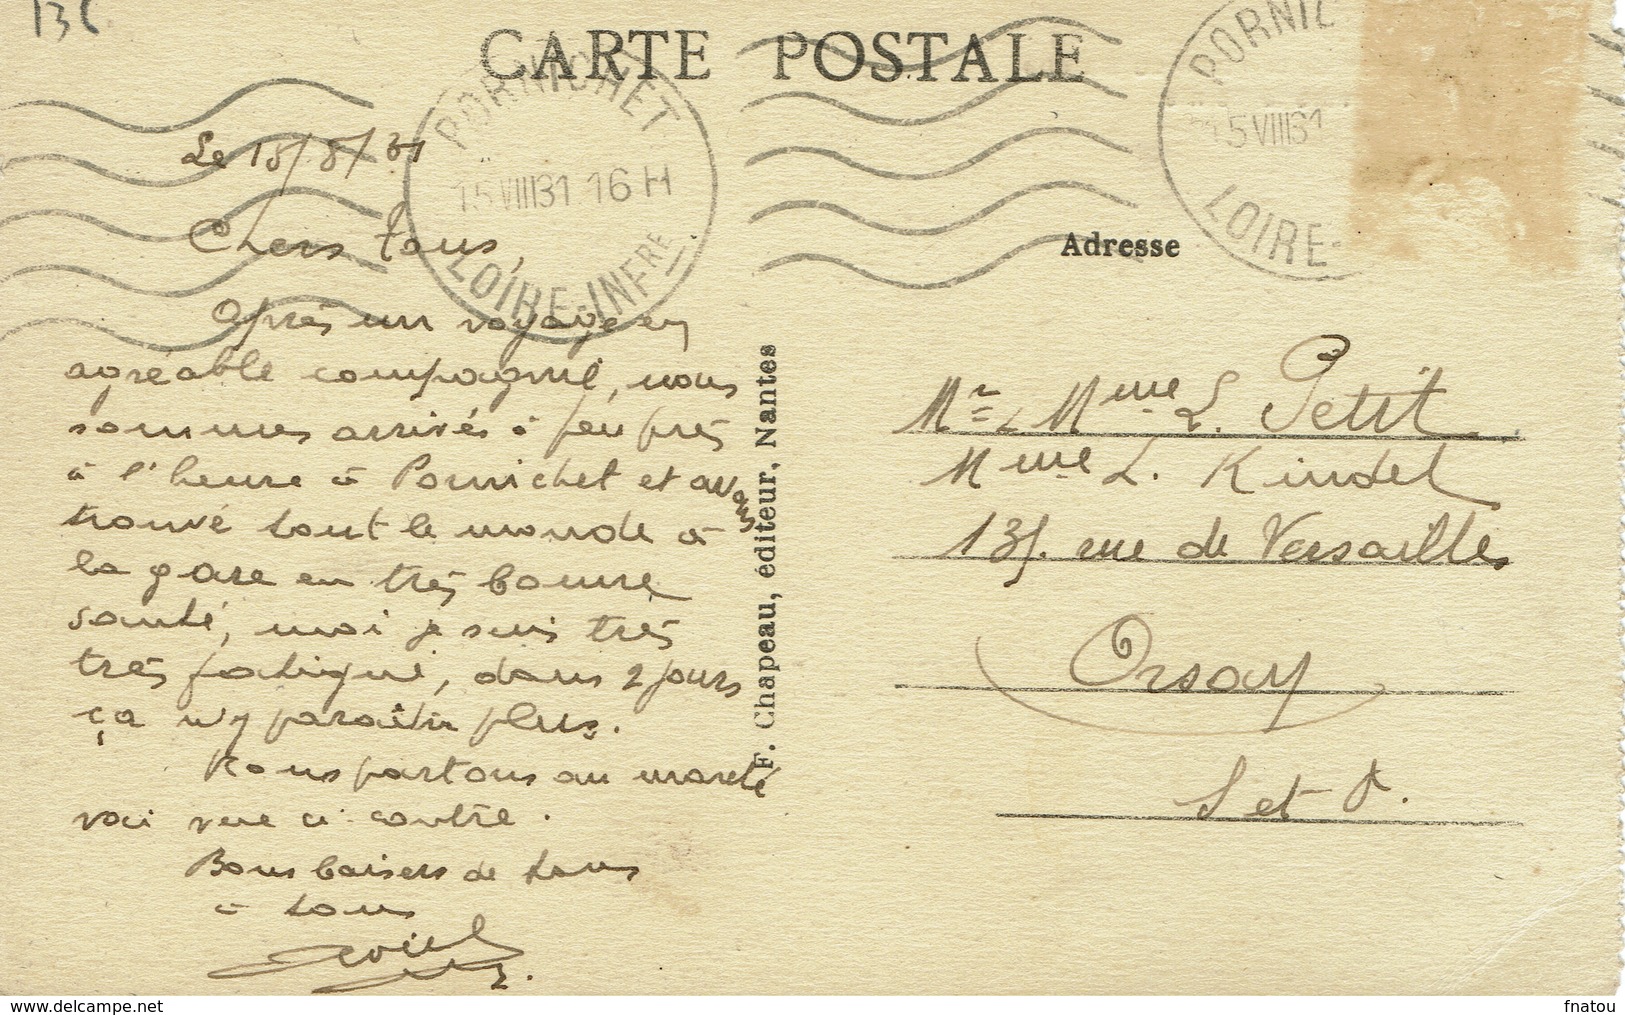 136
CARTE POSTALE
PORNICHET
15 VIII 31 16 H
LOIRE-INFRE
PORNIC
15 VIII 31
LOIRE-
Le 15/8/31
Chers tous,
Après un voyage en
agréable compagnie, nous
sommes arrivés à peu près
à l'heure à Pornichet et avons
trouvé tout le monde à
la gare en très bonne
santé, moi je suis très
très fatigué, dans 2 jours
ça n'y paraîtra plus.
Nous partons au marché
voici vue ci-contre.
Bons baisers de tous
à tous
F. Chapeau, éditeur, Nantes
Adresse
Mr & Mme L. Petit
Mme L. Kindel
rue de Versailles
Orsay
S et O.
delcampe.net
fnatou